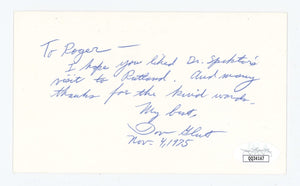 To Roger —
I hope you liked Dr. Spektor's
visit to Rutland. And many
thanks for the kind words.
My best,
Don Glut
Nov. 4, 1975
JSA
QQ34167